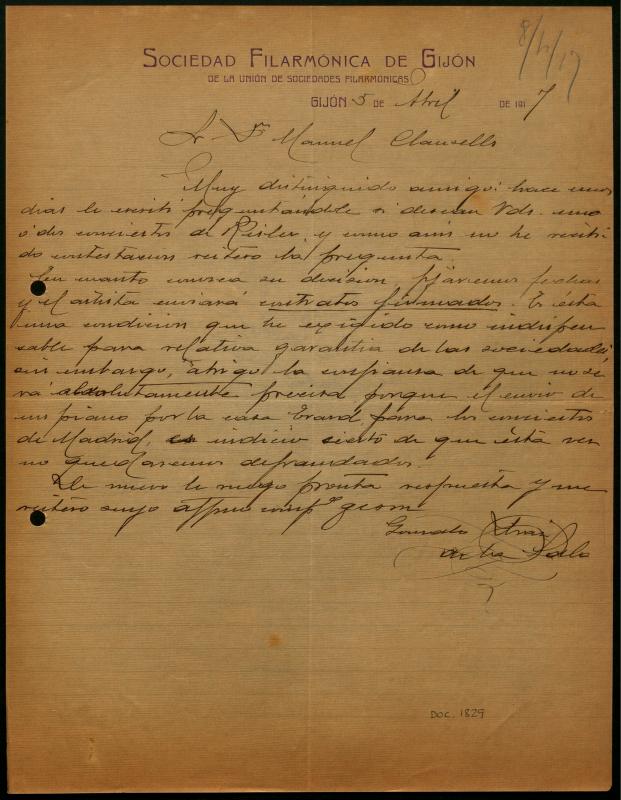 8/4/17
SOCIEDAD FILARMÓNICA DE GIJÓN
DE LA UNIÓN DE SOCIEDADES FILARMÓNICAS
GIJÓN 5 DE Abril DE 1917
Sr Dn Manuel Clausells
Muy distinguido amigo: hace unos
dias le escribí preguntándole si desean Vds. uno
ó dos conciertos de Risler, y como aun no he recibi
do contestacion reitero la pregunta.
En cuanto conozca su decision, fijaremos fechas
y el artista enviará contratos firmados. Es ésta
una condicion que he exigido como indispen
sable para relativa garantia de las sociedades;
sin embargo, abrigo la confianza de que no se
rá absolutamente precisa porque el envio de
un piano por la casa Erard para los conciertos
de Madrid, es indicio cierto de que ésta vez
no quedaremos defraudados.
De nuevo le ruego pronta respuesta y me
reitero suyo affmo
Gonzalo
de la
DOC. 1829